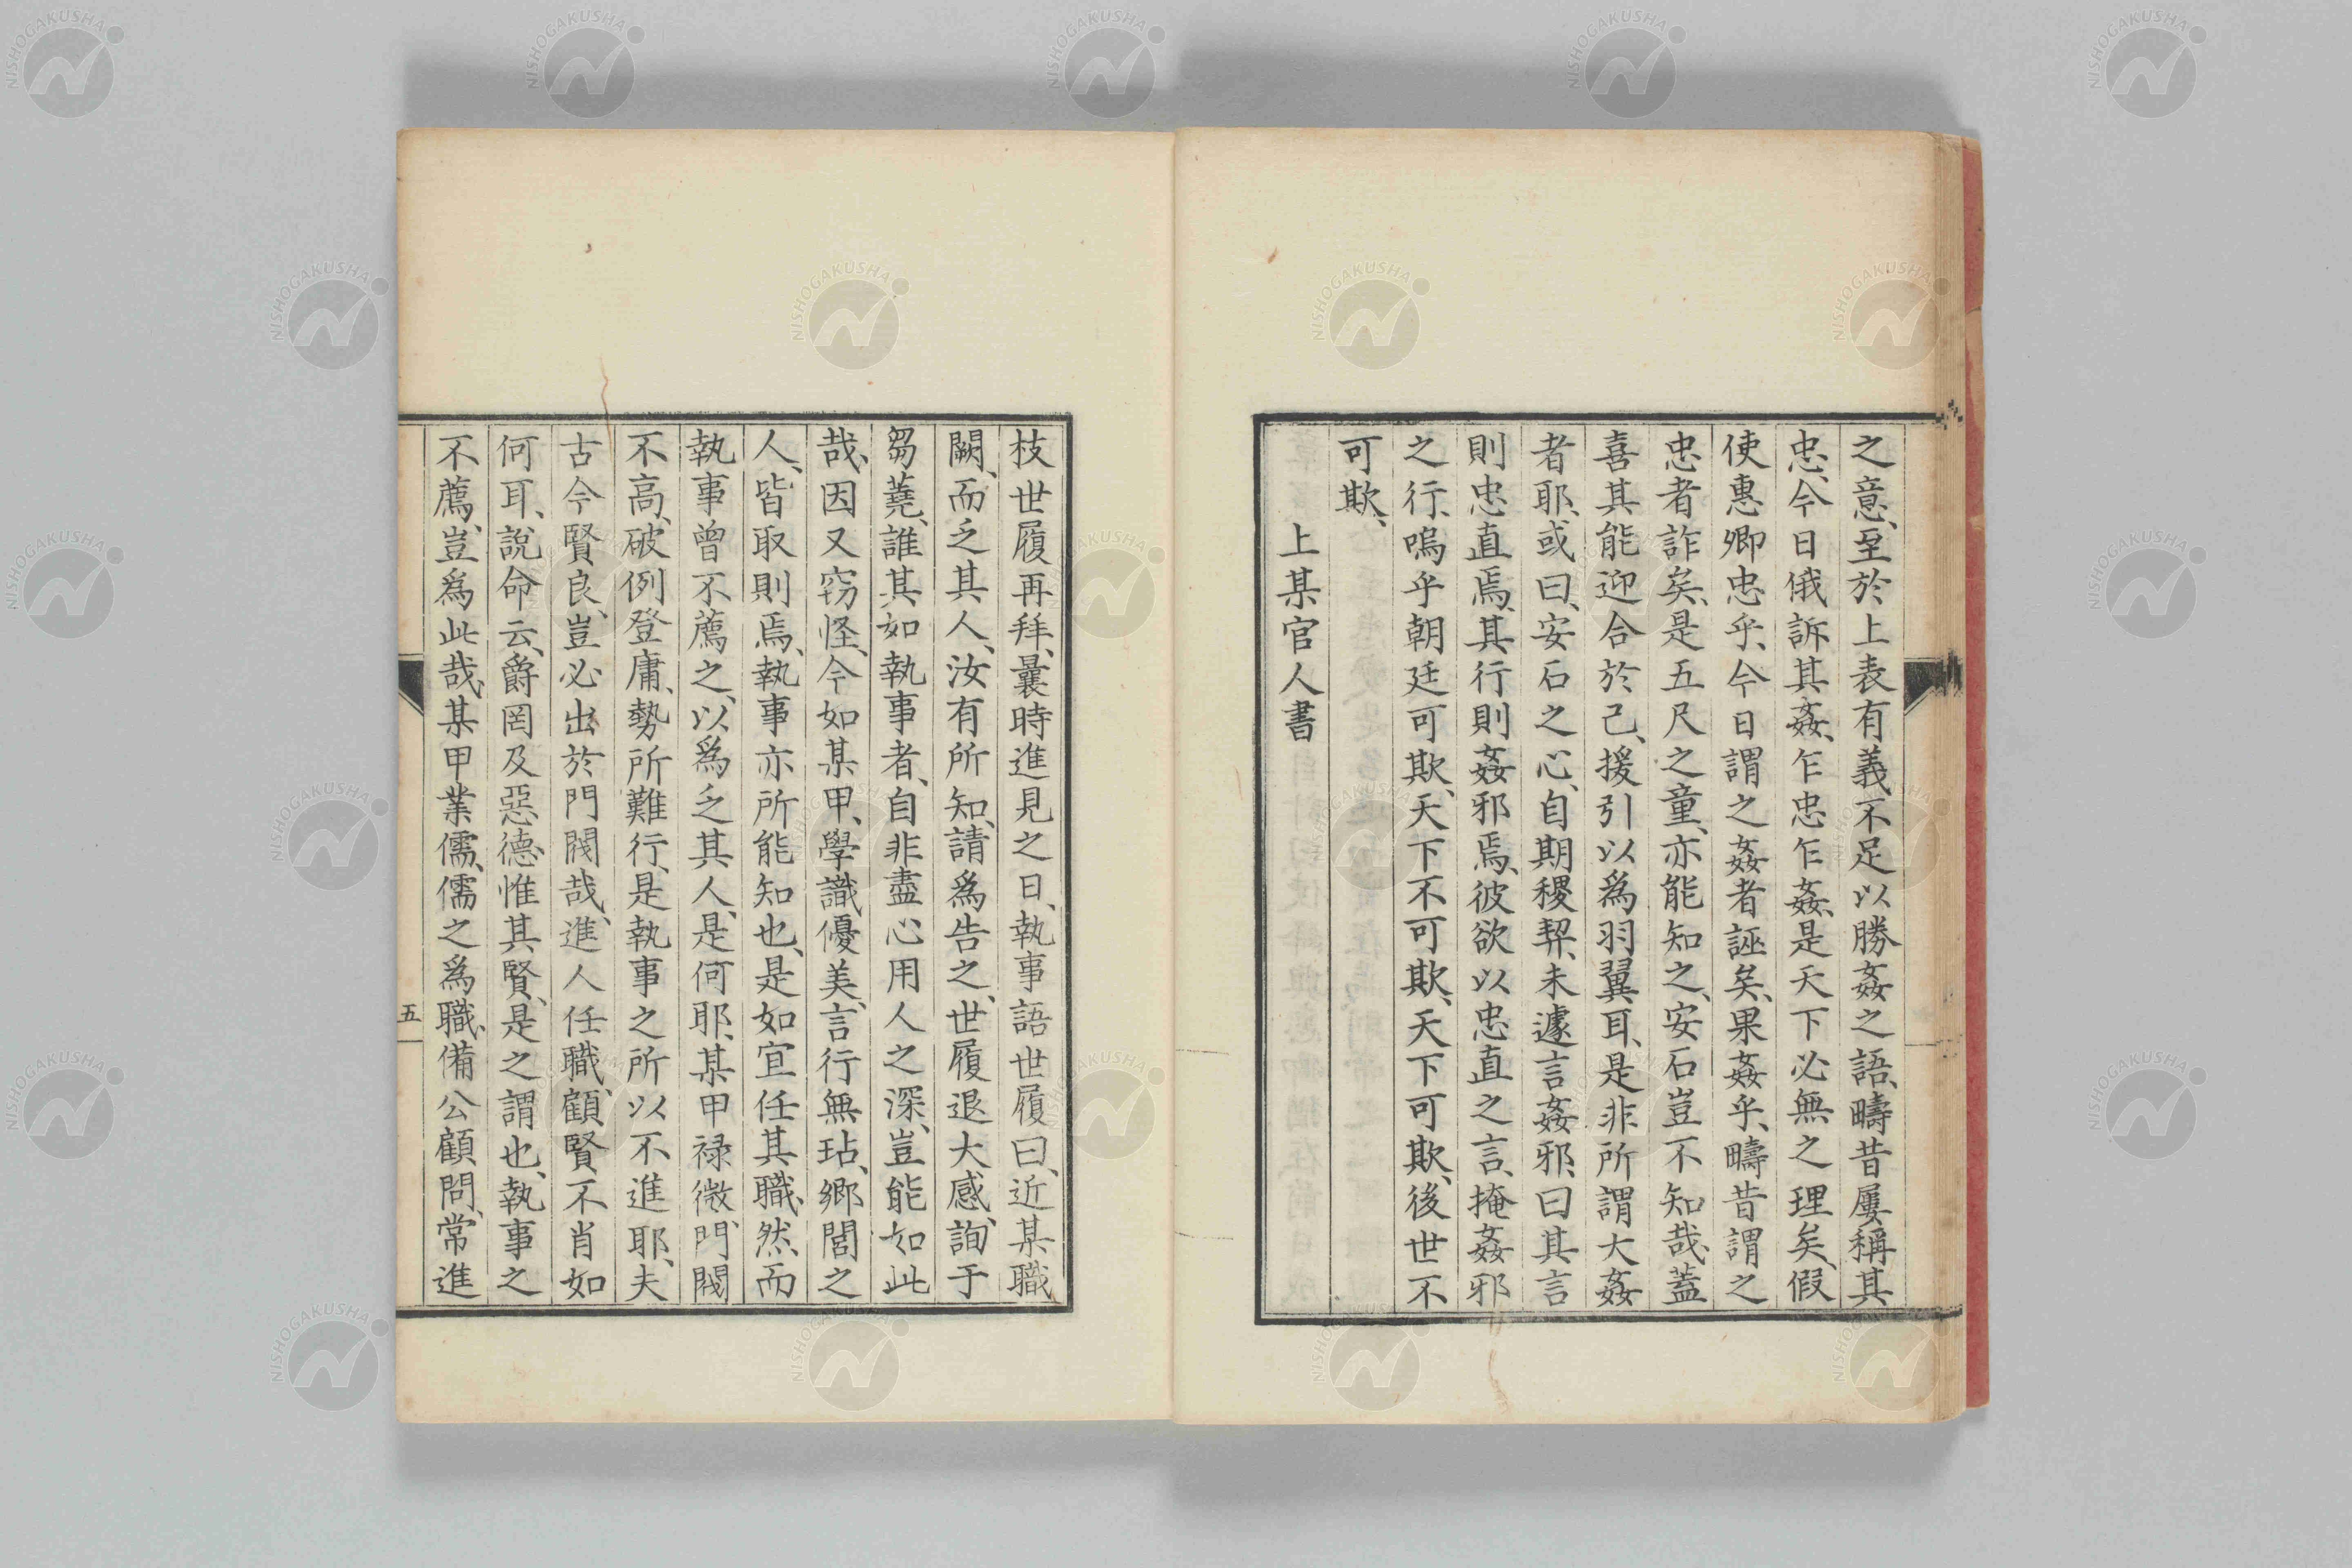 之意、至於上表有義不足以勝姦之語、疇昔屢稱其
忠、今日俄訴其姦、乍忠乍姦、是天下必無之理矣、假
使惠卿忠乎、今日謂之姦者誣矣、果姦乎、疇昔謂之
忠者詐矣、是五尺之童、亦能知之、安石豈不知哉、蓋
喜其能迎合於己、援引以爲羽翼耳、是非所謂大姦
者耶、或曰、安石之心、自期稷契、未遽言姦邪、曰其言
則忠直焉、其行則姦邪焉、彼欲以忠直之言、掩姦邪
之行、嗚乎朝廷可欺、天下不可欺、天下可欺、後世不
可欺、
上某官人書
枝世履再拜、曩時進見之日、執事語世履曰、近某職
闕、而乏其人、汝有所知、請爲告之、世履退大感、詢于
芻蕘、誰其如執事者、自非盡心用人之深、豈能如此
哉、因又窃怪、今如某甲、學識優美、言行無玷、鄉閭之
人、皆取則焉、執事亦所能知也、是如宜任其職、然而
執事曾不薦之、以爲乏其人、是何耶、某甲祿微、門閥
不高、破例登庸、勢所難行、是執事之所以不進耶、夫
古今賢良、豈必出於門閥哉、進人任職、顧賢不肖如
何耳、說命云、爵罔及惡德惟其賢、是之謂也、執事之
不薦、豈爲此哉、某甲業儒、儒之爲職、備公顧問、常進
五
NISHOGAKUSHA